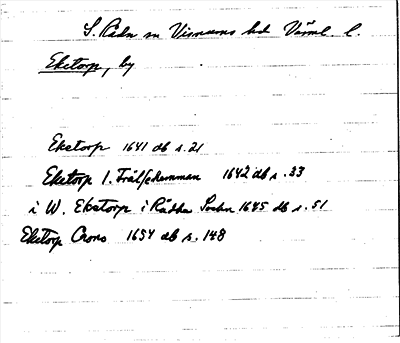 S. Råda sn Visnums hd Värml. l.
Ekstorp, by
Ekstorp 1641 db s. 21
Ekstorp 1. 1642 db s. 33
i W. Ekstorp i Rådha Sochn 1645 db s. 51
Ekstorp Crono 1654 db s. 148